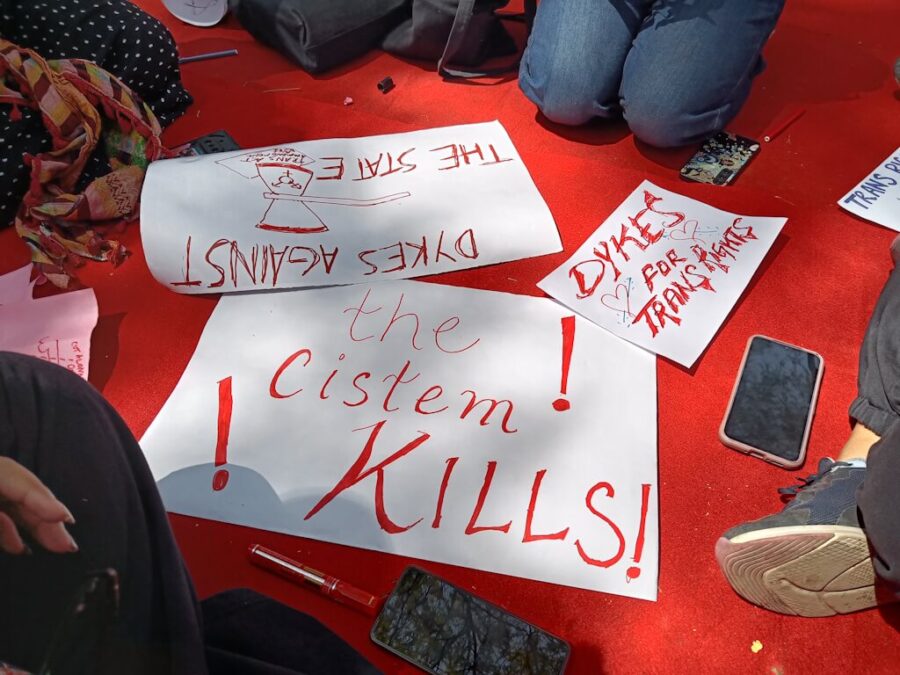 DYKES AGAINST
THE STATE
TRANS ACT
DYKES
FOR
TRANS RIGHTS
TRANS
the
Cistem
KILLS!
!
!